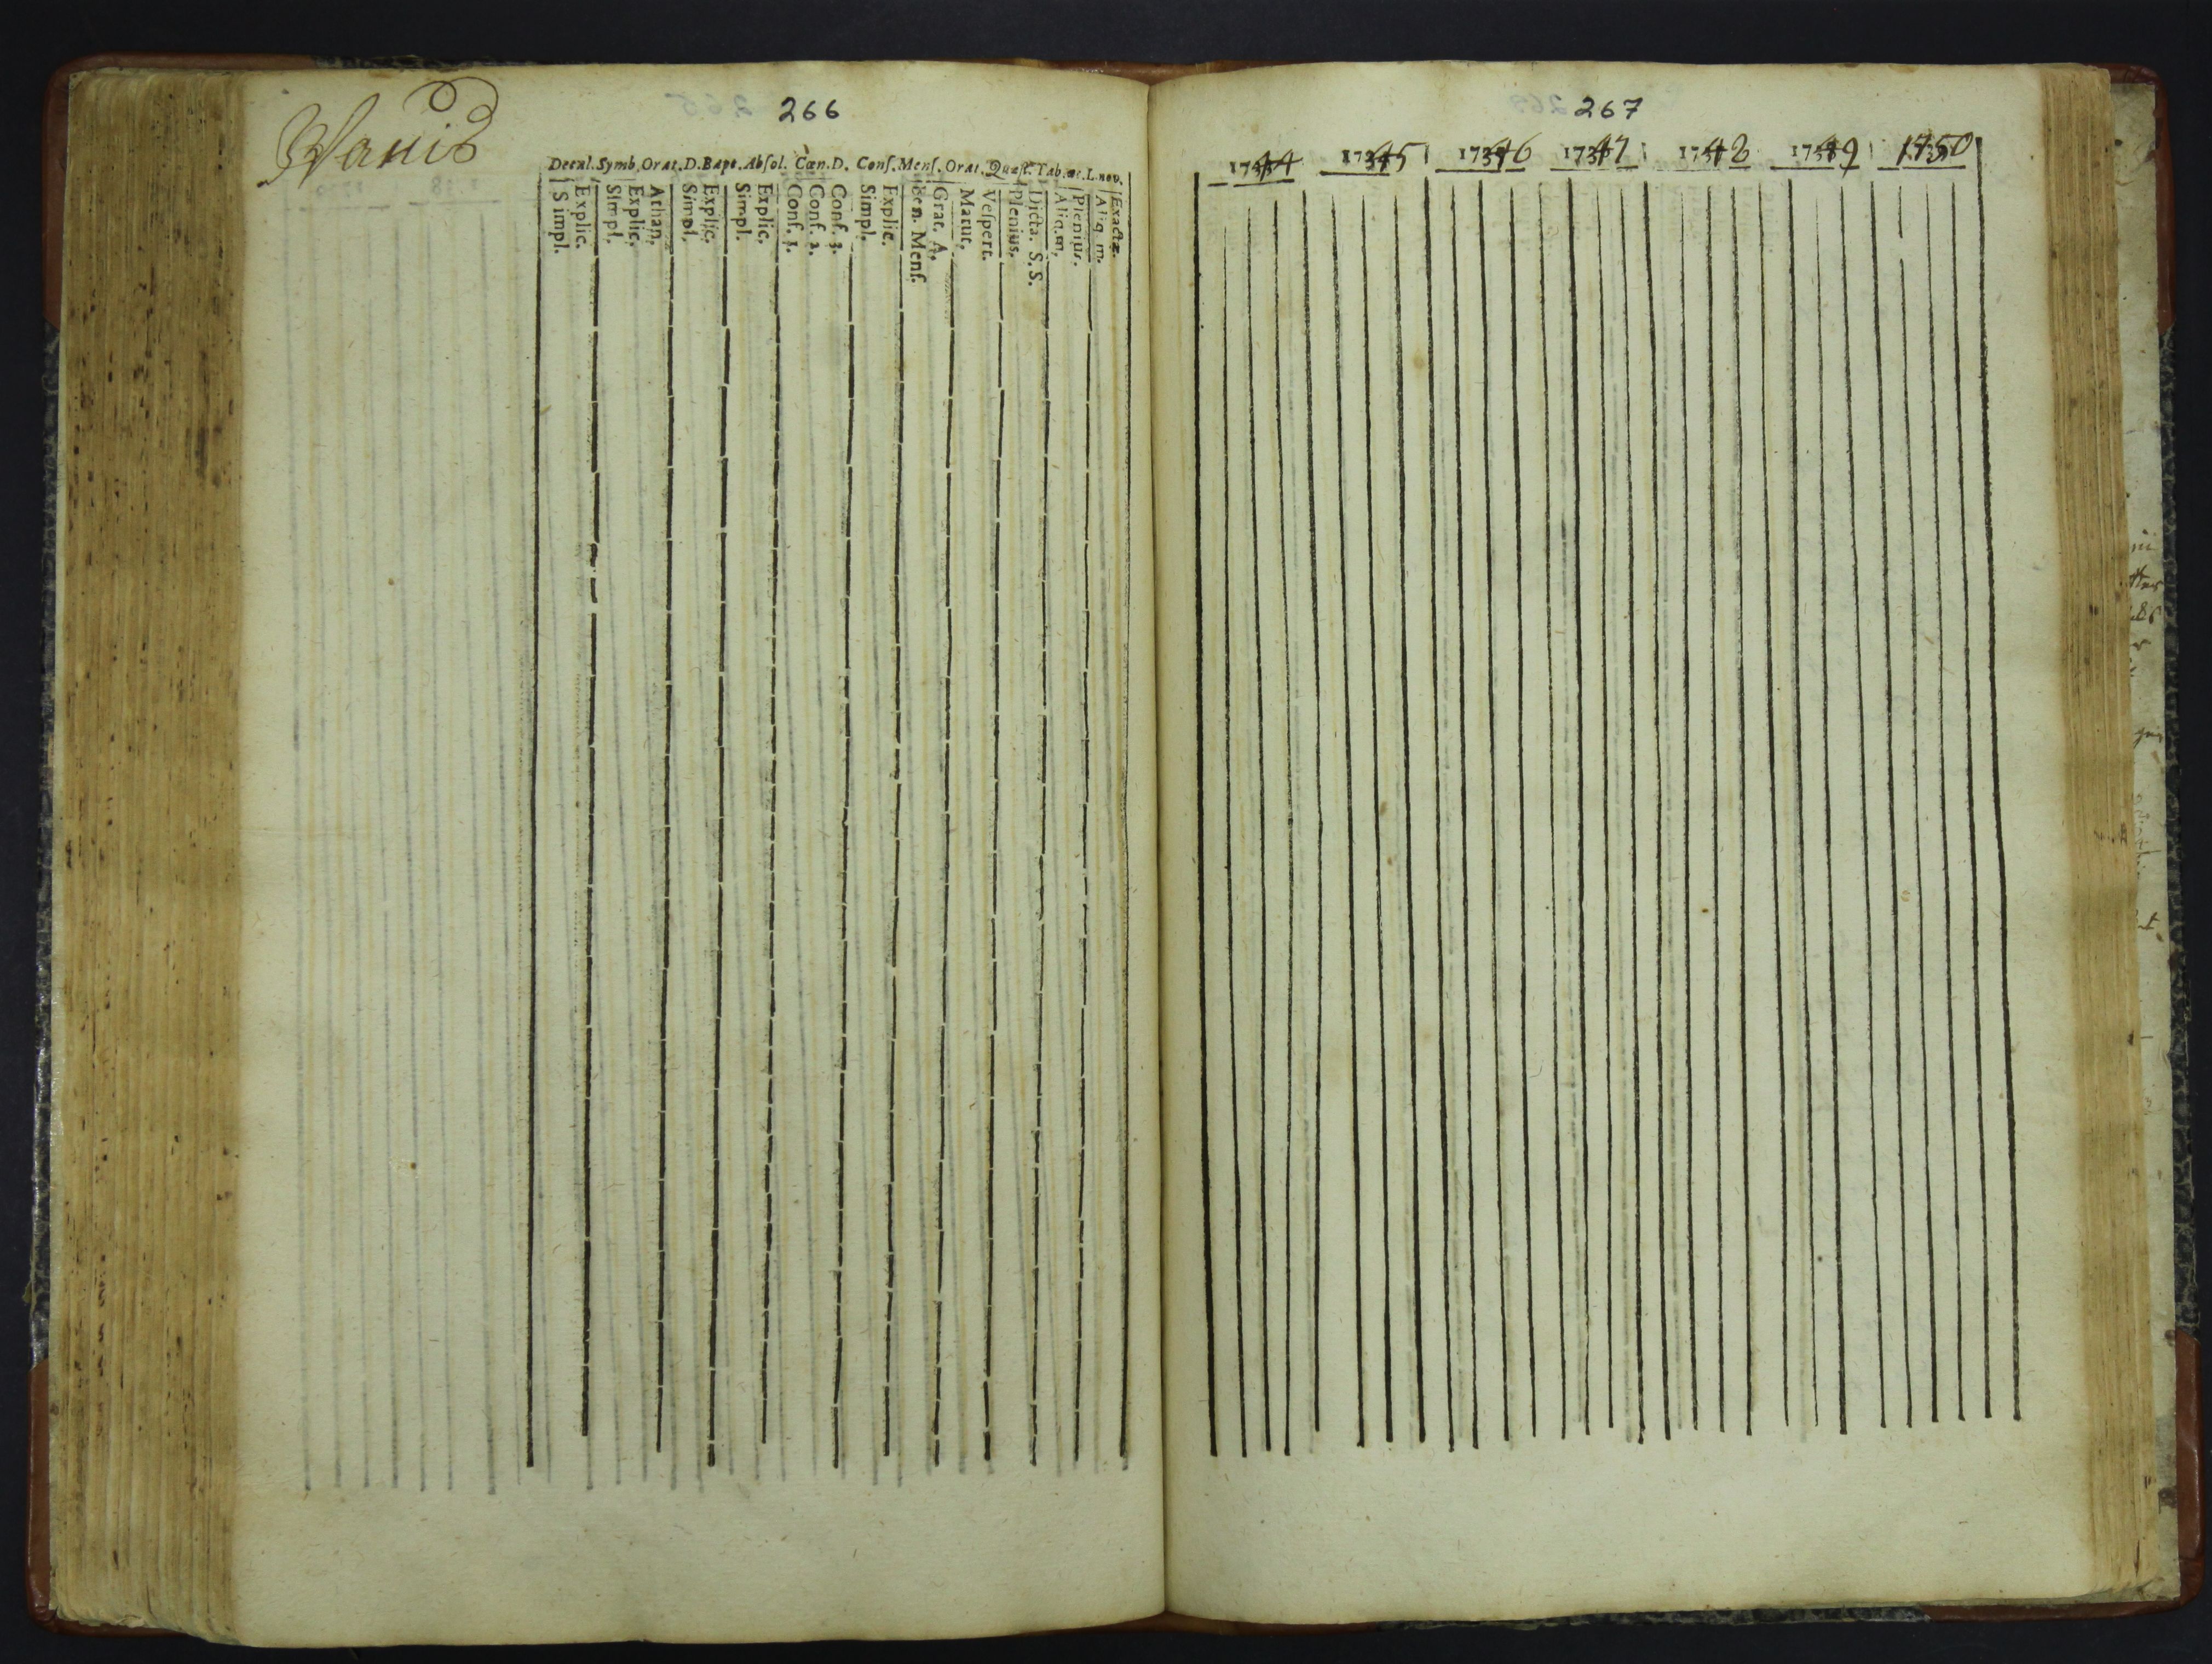 266
Decal. Symb. Orat. D. Bapt. Absol. Cœn. D. Conf. Mens. Orat. Quæst. Tab. œc. L. nov.
Simpl.
Explic.
Simpl.
Explic.
Athan.
Simpl.
Explic.
Simpl.
Explic.
Conf. 1.
Conf. 2.
Conf. 3.
Simpl.
Explic.
Ben. Menſ.
Grat. A.
Matut.
Veſpert.
Plenius.
Dicta. S. S.
Aliq. m.
Plenius.
Aliq. m.
Exactæ.
267
1744 1745 1746 1747 1748 1749 1750